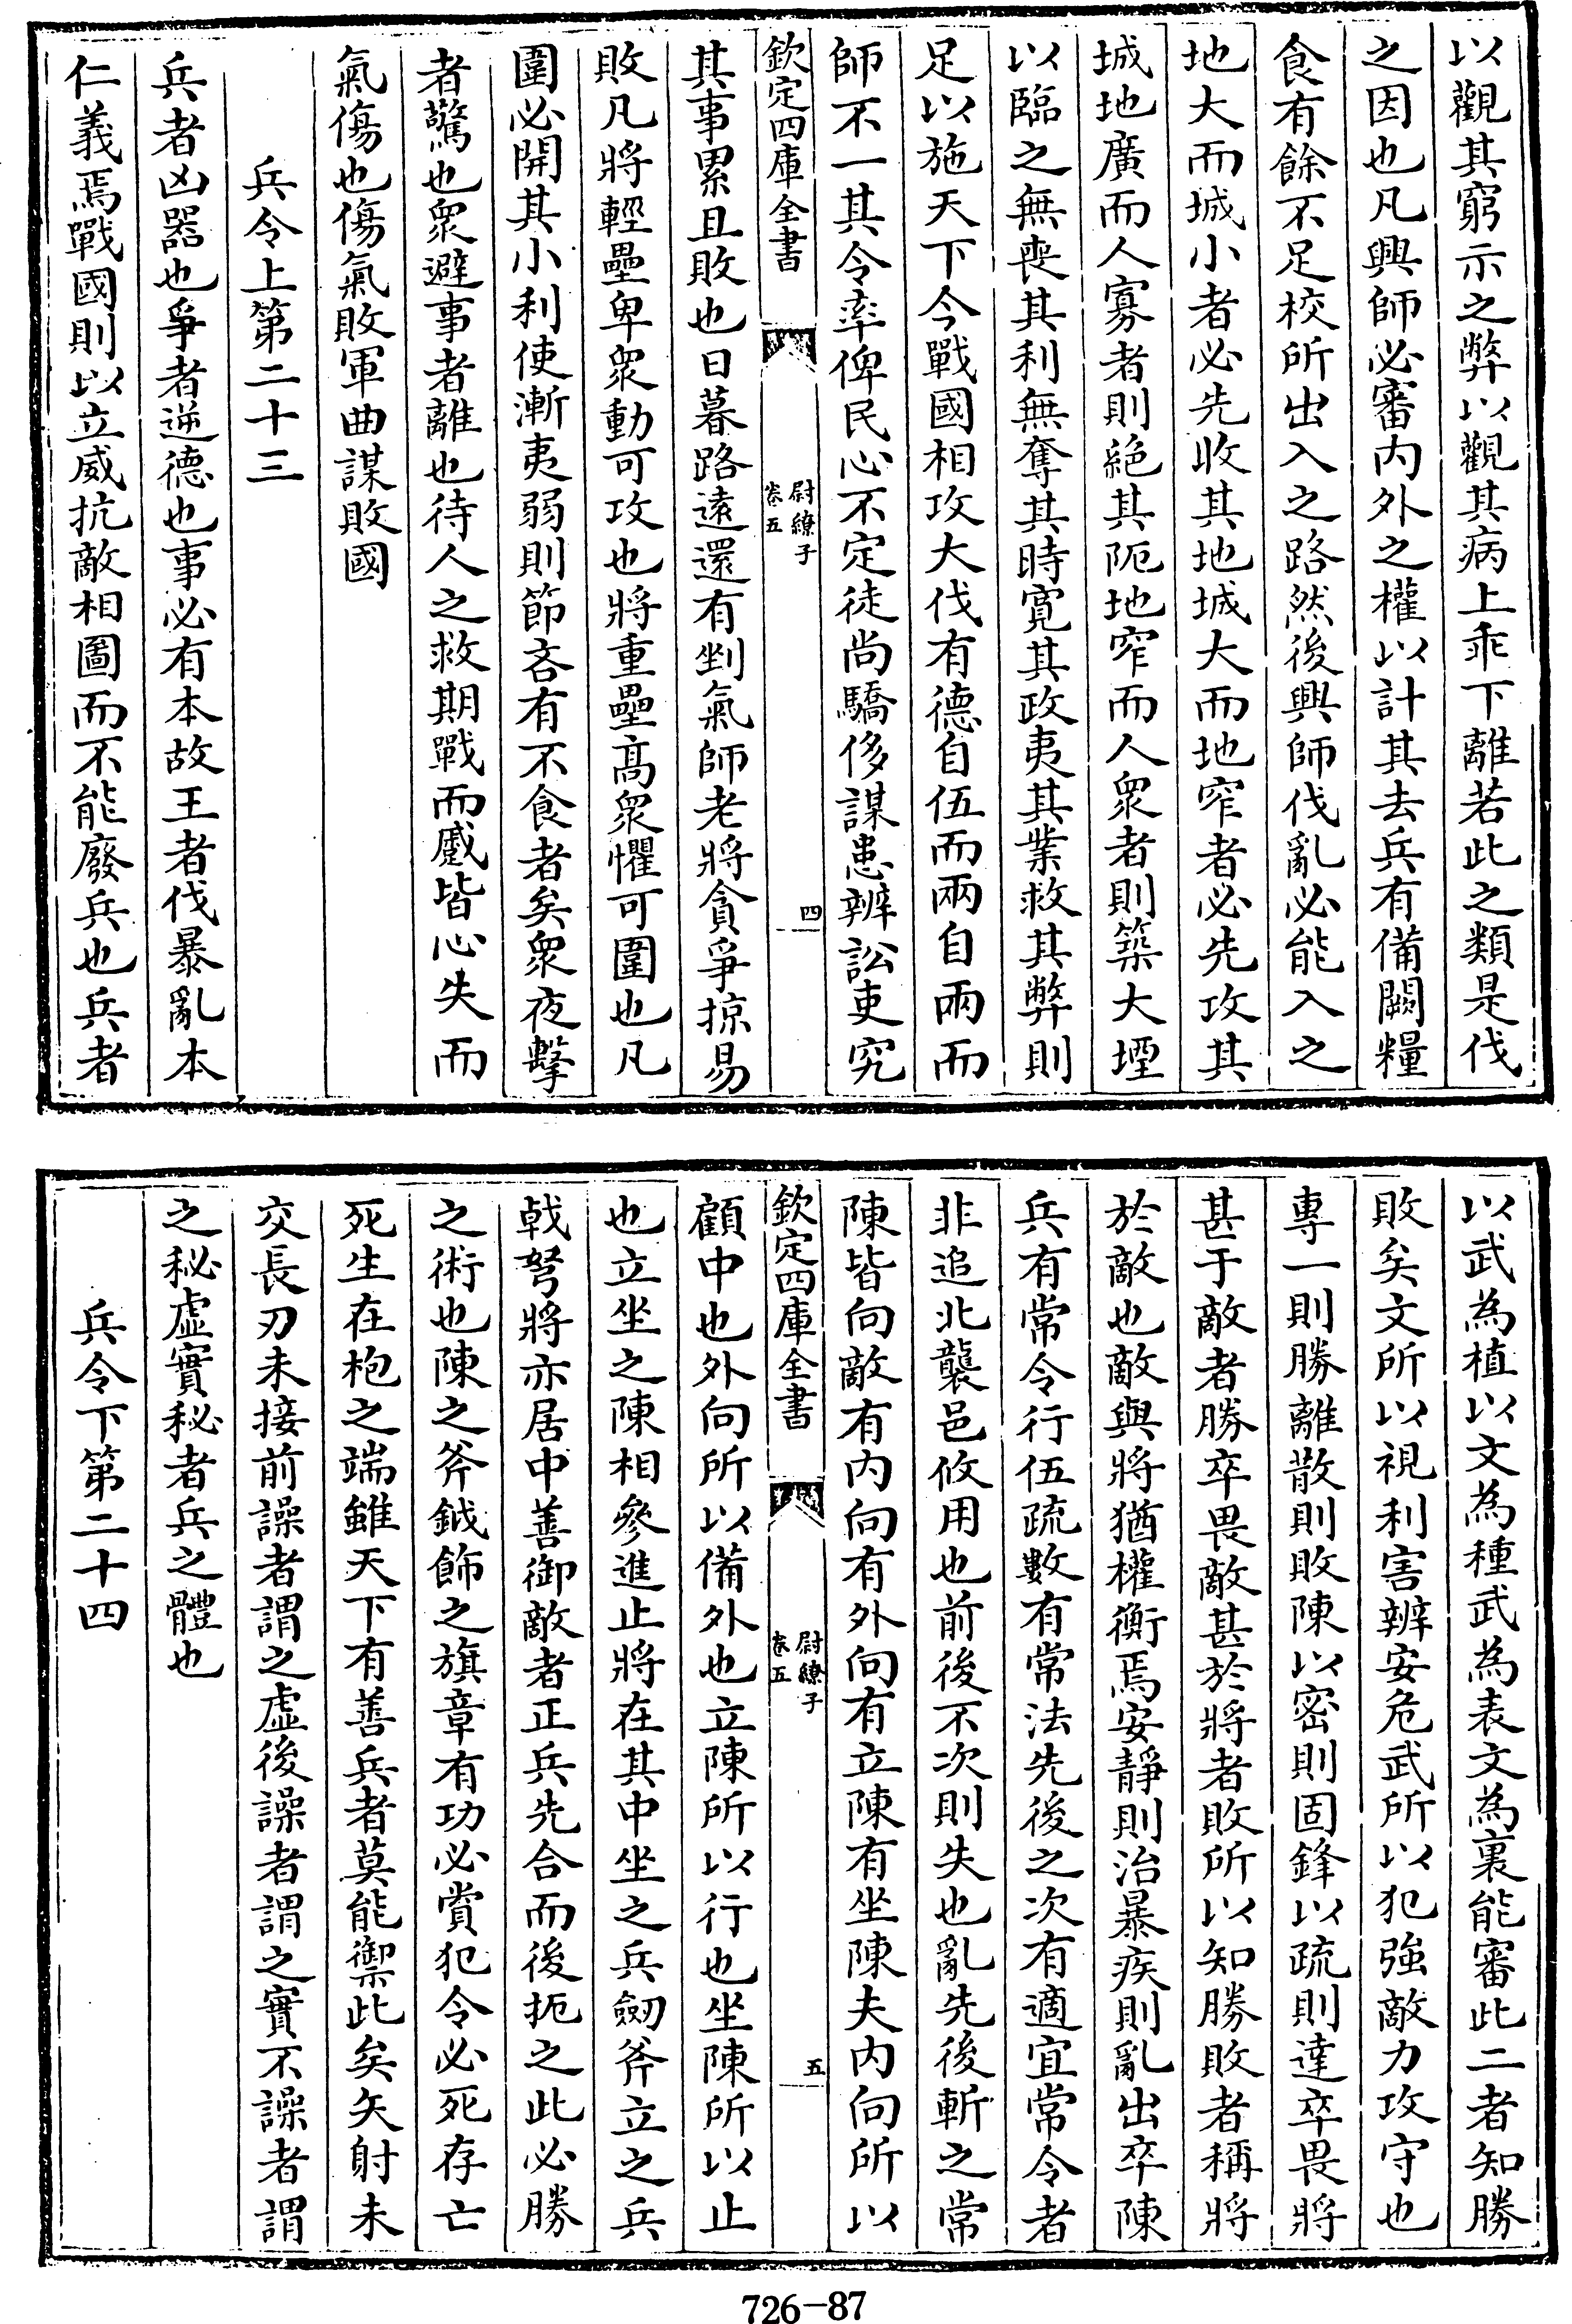 以觀其窮示之弊以觀其病上乖下離若此之類是伐
之因也凡興師必審內外之權以計其去兵有備闕糧
食有餘不足校所出入之路然後興師伐亂必能入之
地大而城小者必先收其地城大而地窄者必先攻其
城地廣而人寡者則絕其阨地窄而人眾者則築大堙
以臨之無喪其利無奪其時寬其政夷其業救其弊則
足以施天下今戰國相攻大伐有德自伍而兩自兩而
師不一其令率俾民心不定徒尚驕侈謀患辨訟吏究
欽定四庫全書
尉繚子
卷五
四
其事累且敗也日暮路遠還有剉氣師老將貪爭掠易
敗凡將輕壘卑眾動可攻也將重壘高眾懼可圍也凡
圍必開其小利使漸夷弱則節吝有不食者矣眾夜擊
者驚也眾避事者離也待人之救期戰而蹙皆心失而
氣傷也傷氣敗軍曲謀敗國
兵令上第二十三
兵者凶器也爭者逆德也事必有本故王者伐暴亂本
仁義焉戰國則以立威抗敵相圖而不能廢兵也兵者
以武為植以文為種武為表文為裏能審此二者知勝
敗矣文所以視利害辨安危武所以犯強敵力攻守也
專一則勝離散則敗陳以密則固鋒以疏則達卒畏將
甚于敵者勝卒畏敵甚於將者敗所以知勝敗者稱將
於敵也敵與將猶權衡焉安靜則治暴疾則亂出卒陳
兵有常令行伍疏數有常法先後之次有適宜常令者
非追北襲邑攸用也前後不次則失也亂先後斬之常
陳皆向敵有內向有外向有立陳有坐陳夫內向所以
欽定四庫全書
尉繚子
卷五
五
顧中也外向所以備外也立陳所以行也坐陳所以止
也立坐之陳相參進止將在其中坐之兵劒斧立之兵
戟弩將亦居中善御敵者正兵先合而後扼之此必勝
之術也陳之斧鉞飾之旗章有功必賞犯令必死存亡
死生在枹之端雖天下有善兵者莫能禦此矣矢射未
交長刃未接前譟者謂之虛後譟者謂之實不譟者謂
之秘虛實秘者兵之體也
兵令下第二十四
726-87